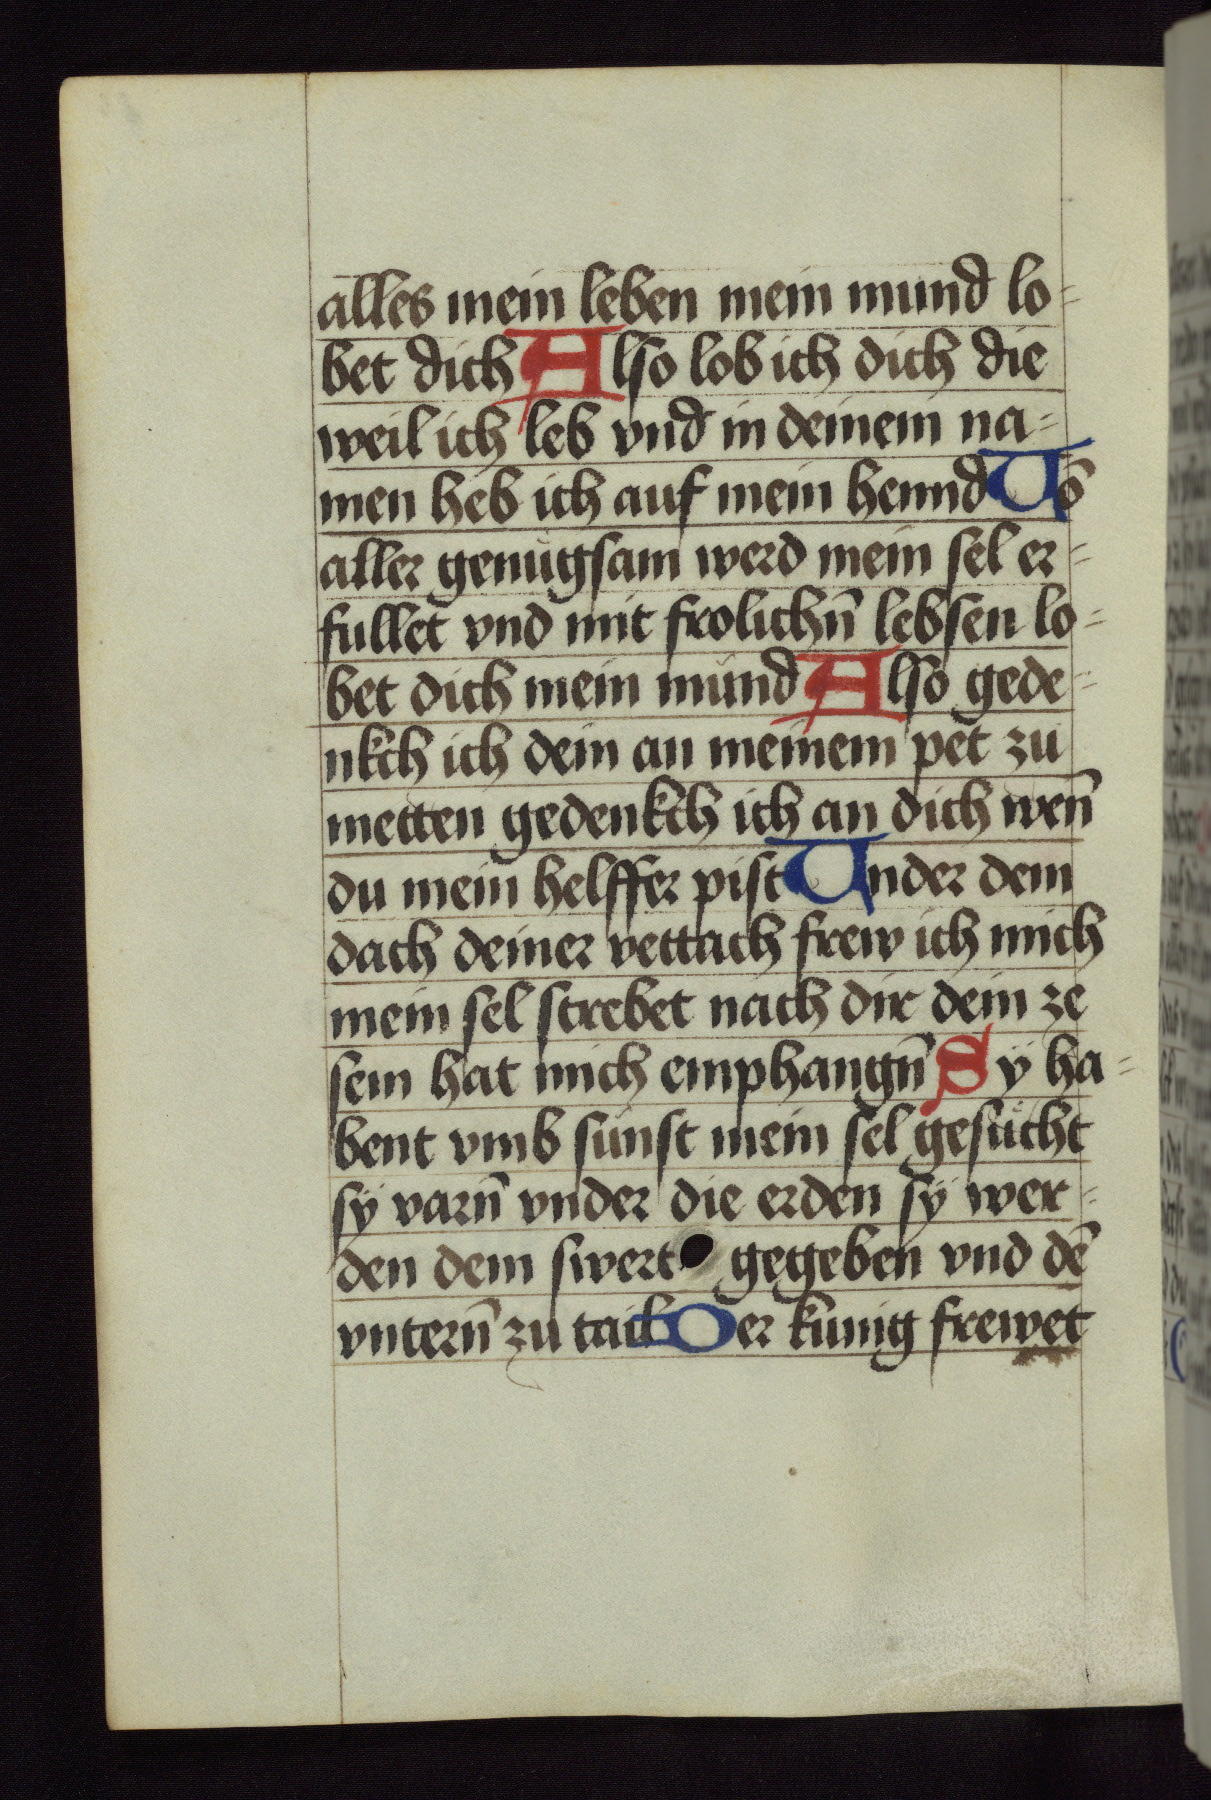 alles mein leben mein mund lo=
bet dich Also lob ich dich die
weil ich leb vnd in deinem na=
men heb ich auf mein hennd Vō
aller genugsam werd mein sel er=
fullet vnd mit frolichn̄ lebsen lo=
bet dich mein mund Also gede=
nkch ich dein an meinem pet zu
metten gedenkch ich an dich wen̄
du mein helffer pist Vnder dem
dach deiner vettach frew ich mich
mein sel strebet nach dir dein ze
sem hat mich emphangn̄ Sÿ ha=
bent vmb sunst mein sel gesucht
sÿ varn̄ vnder die erden sÿ wer=
den dem swert gegeben vnd dē
vntern̄ zu tail Der kunig frewet